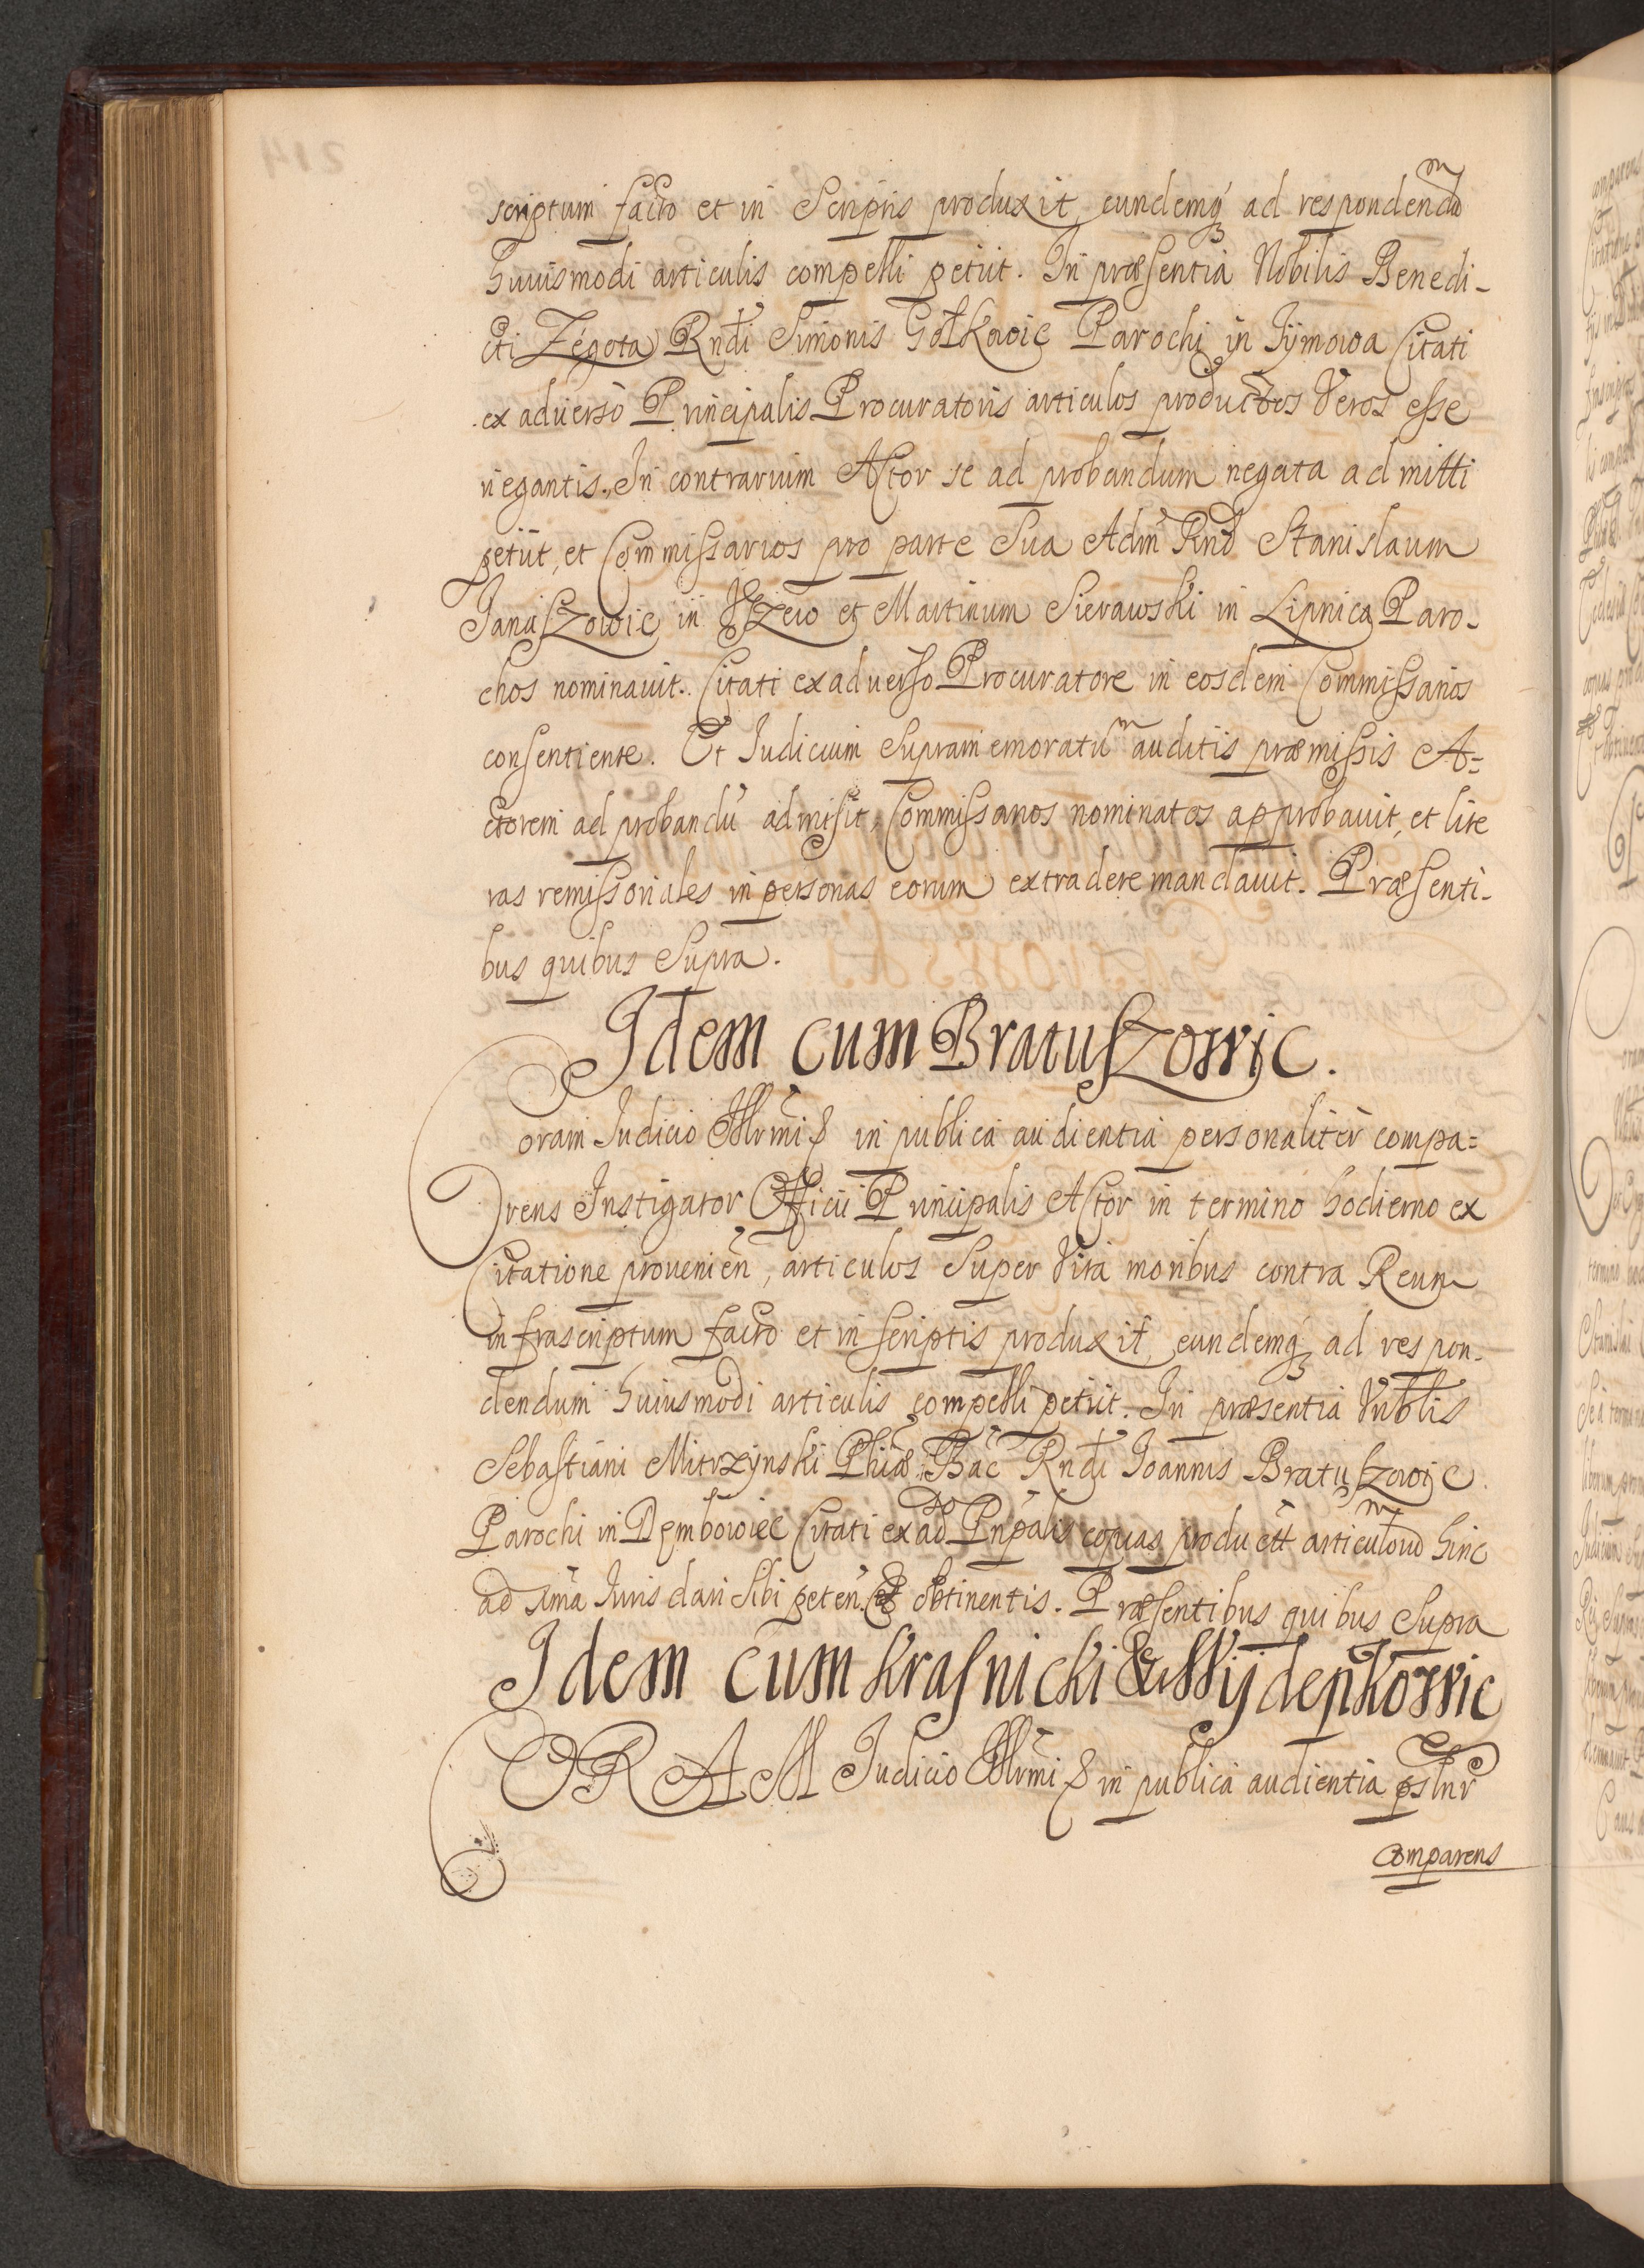 scriptum facto et in Scriptis produxit, eundemq́ ad respondendũ
huiusmodi articulis compelli petiit. In præsentia Nobilis Benedi-
cti Zegota Rndi Simonis Gołkowic Parochi in Tymowa Citati
ex aduerso Principalis Procuratoris articulos productos Veros esse
negantis. In contrarium Actor se ad probandum negata admitti
petiit, et Commissarios pro parte Sua Adm̃ Rnd Stanislaum
Janiszowic in Uszew et Martinum Sierawski in Lipnica Paro-
chos nominauit. Citati ex aduerso Procuratore in eosdem Commissarios
consentiente. Et Iudicium Supramemoratũ auditis præmissis A=
ctorem ad probandũ admisit, Commissarios nominatos approbauit, et lite
ras remissoriales in personas eorum extradere mandauit. Præsenti-
bus quibus Supra.
Idem cum Bratuszowic.
Coram Iudicio Illrmi & in publica audientia personaliter compa=
rens Instigator Officii Principalis Actor in termino hodierno ex
Citatione prouenien̄, articulos Super Vita moribus contra Reum
infrascriptum facto et in scriptis produxit, eundemq́ ad respon-
dendum huiusmodi articulis compelli petiit. In præsentia Vnblis
Sebastiani Mirzynski Phiæ Bac̃ Rndi Ioannis Bratuszowic
Parochi in Dembowiec Citati ex ad Pnpalis copias product articulorũ hinc
ad 1ma Iuris dari Sibi peten̄ et obtinentis. Præsentibus quibus Supra
Idem cum Krasnicki & Wydepkowic
CORAM Iudicio Illrmi & in publica audientia pslnr
Comparens